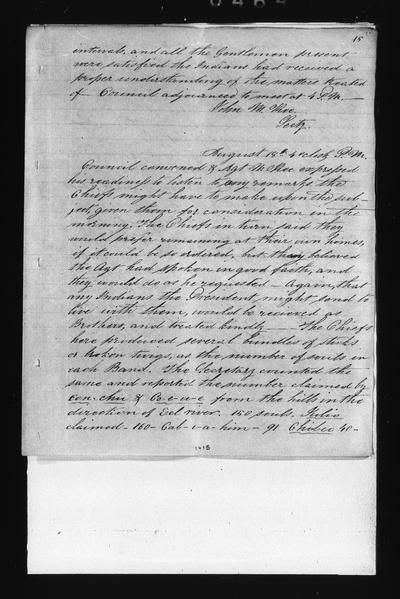 15
intervals, and all the Gentlemen present
were satisfied the Indians had received a
proper understanding of the matters treated
of Council adjourned to meet at 4 P.M.
John M.
Secty.
August 18th 4 oclock P.M.
Council convened & Agt McKee expressed
his readiness to listen to any remarks the
Chiefs might have to make upon the sub-
ject, given them for consideration in the
morning. The Chiefs in turn said they
would prefer remaining at their own homes,
if it could be so ordered, but they believed
the Agt had spoken in good faith, and
they would do as he requested – Again, that
any Indians the President might send to
live with them, would be recieved as
Brothers, and treated kindly — The Chiefs
here produced several bundles of sticks
or broken twigs, as the number of souls in
each Band. The Secretary counted the
same and reported the number claimed by
Con-chu & Ce-e-u-e from the hills in the
direction of Eel river. 160 souls.
claimed – 160 – Cal-i-a-him – 91 Chibec 40 –